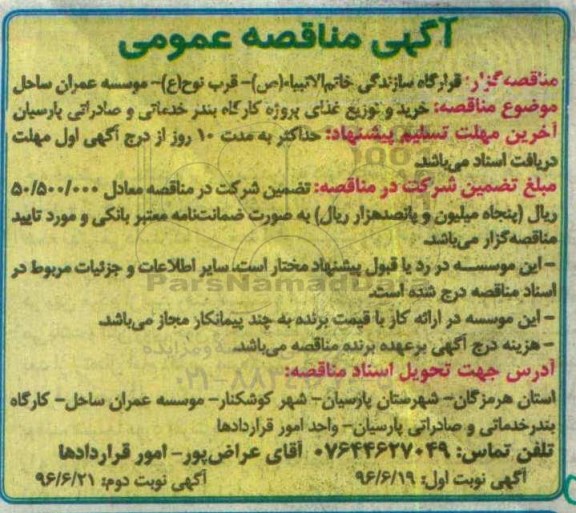 آگهی مناقصه عمومی
مناقصه‌گزار: قرارگاه سازندگی خاتم‌الانبیاء(ص)- قرب نوح(ع)- موسسه عمران ساحل
موضوع مناقصه: خرید و توزیع غذای پروژه کارگاه بندر خدماتی و صادراتی پارسیان
آخرین مهلت تسلیم پیشنهاد: حداکثر به مدت ۱۰ روز از درج آگهی اول مهلت
دریافت اسناد می‌باشد.
مبلغ تضمین شرکت در مناقصه: تضمین شرکت در مناقصه معادل ۵۰/۵۰۰/۰۰۰
ریال (پنجاه میلیون و پانصدهزار ریال) به صورت ضمانت‌نامه معتبر بانکی و مورد تایید
مناقصه‌گزار می‌باشد.
- این موسسه در رد یا قبول پیشنهاد مختار است. سایر اطلاعات و جزئیات مربوط در
اسناد مناقصه درج شده است.
ParsNamadData
- این موسسه در ارائه کار با قیمت برنده به چند پیمانکار مجاز می‌باشد.
- هزینه درج آگهی برعهده برنده مناقصه می‌باشد.
آدرس جهت تحویل اسناد مناقصه:
استان هرمزگان- شهرستان پارسیان- شهر کوشکنار- موسسه عمران ساحل- کارگاه
بندرخدماتی و صادراتی پارسیان- واحد امور قراردادها
تلفن تماس: ۰۷۶۴۴۶۲۷۰۴۹ آقای عراض‌پور- امور قراردادها
آگهی نوبت اول: ۹۶/۶/۱۹ آگهی نوبت دوم: ۹۶/۶/۲۱